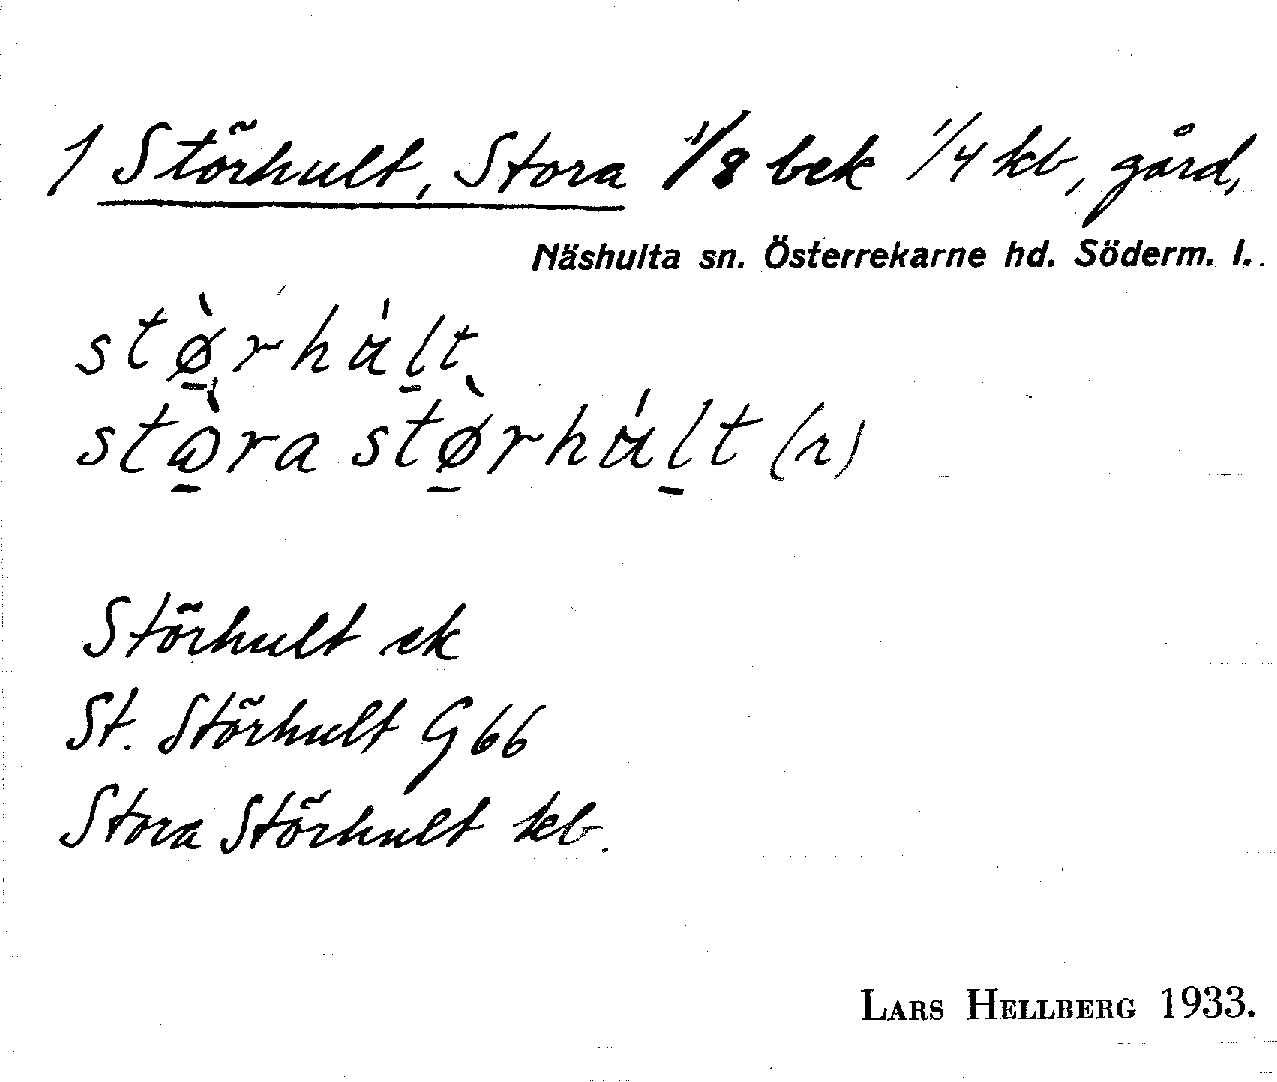 1 Störhult, Stora 1/8 bek 1/4 kb, gård,
Näshulta sn. Österrekarne hd. Söderm. l.
stø̀rhúlt
stòra stø̀rhúlt (n)
Störhult ek
St. Störhult G 66
Stora Störhult kb.
LARS HELLBERG 1933.